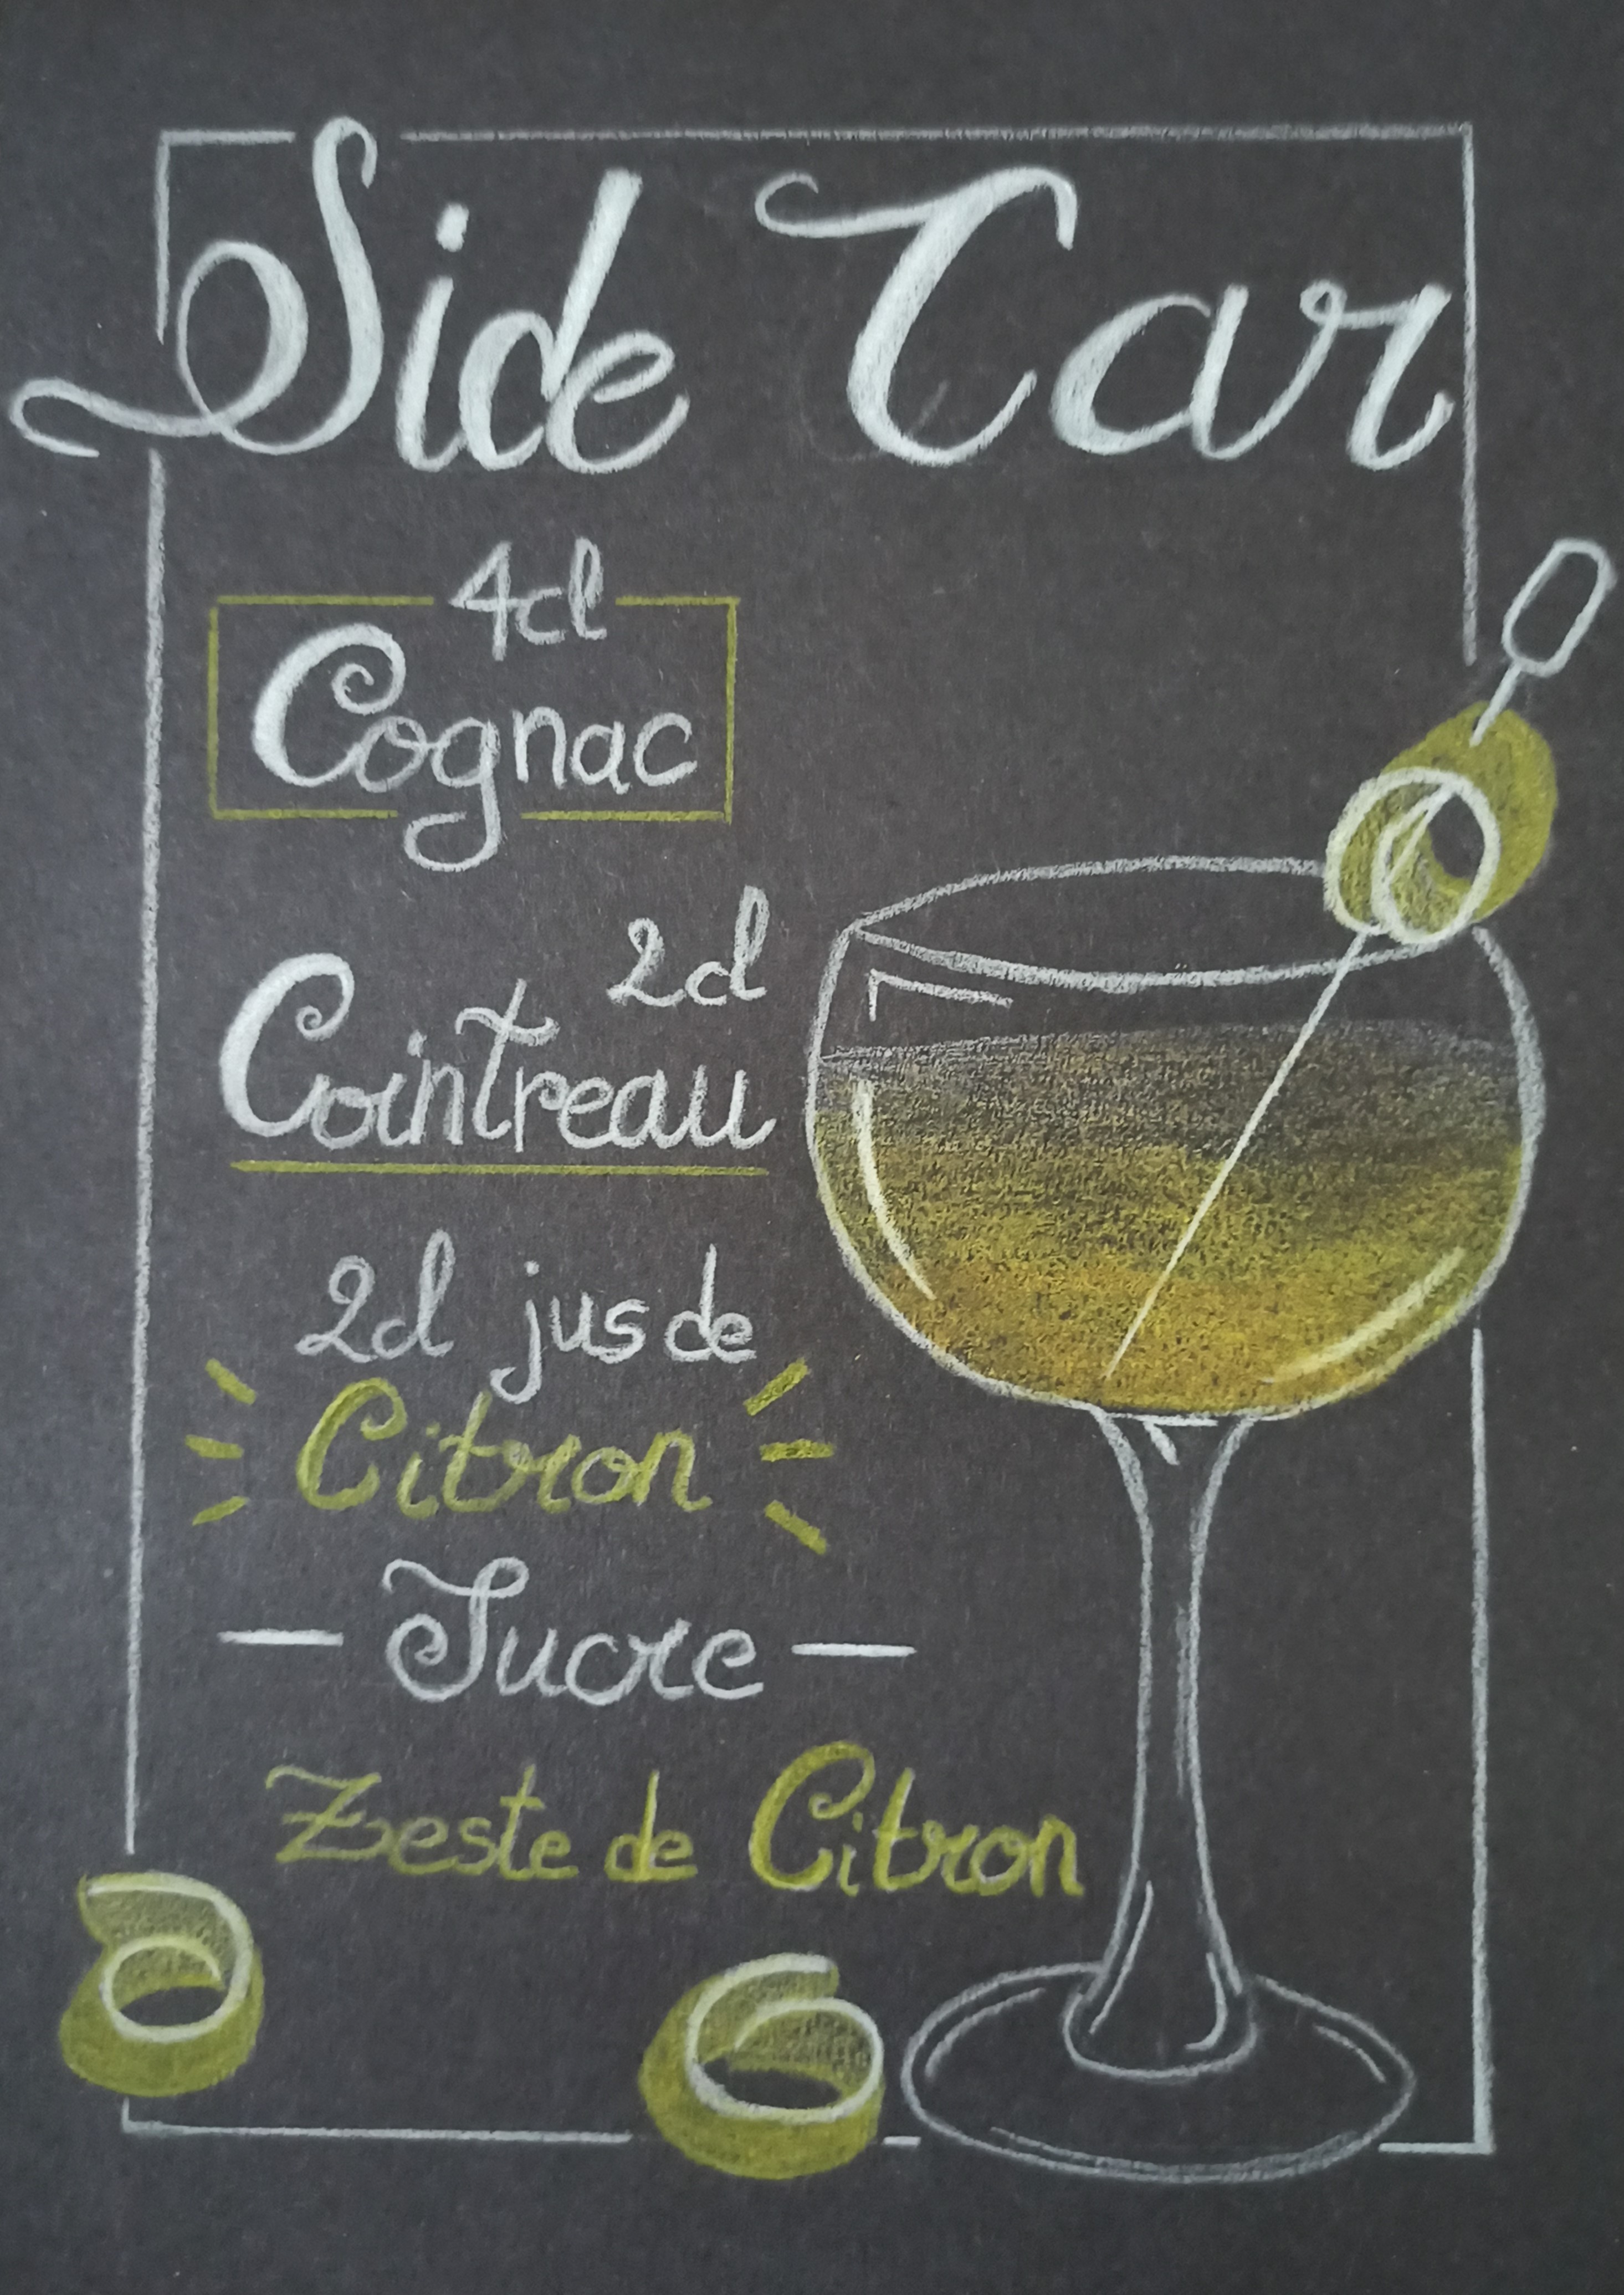 Side Car
4cl
Cognac
2cl
Cointreau
2cl jus de
Citron
— Sucre —
Zeste de Citron